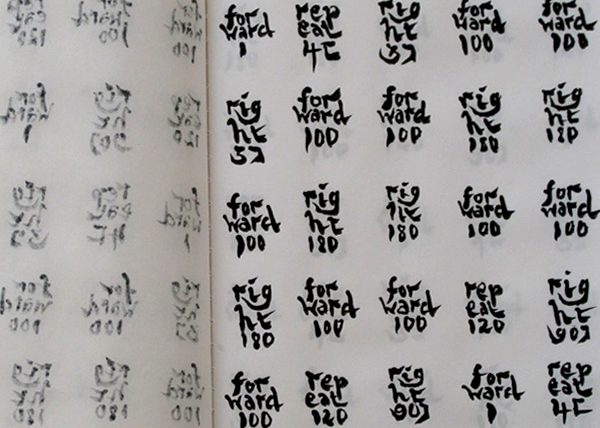 for
ward
1
rep
eat
4[
rig
ht
3]
for
ward
100
for
ward
100
rig
ht
3]
for
ward
100
for
ward
100
rig
ht
180
rig
ht
180
for
ward
100
rig
ht
180
rig
ht
180
for
ward
100
for
ward
100
rig
ht
180
for
ward
100
for
ward
100
rep
eat
120
rig
ht
90]
for
ward
100
rep
eat
120
rig
ht
90]
for
ward
1
rep
eat
4[